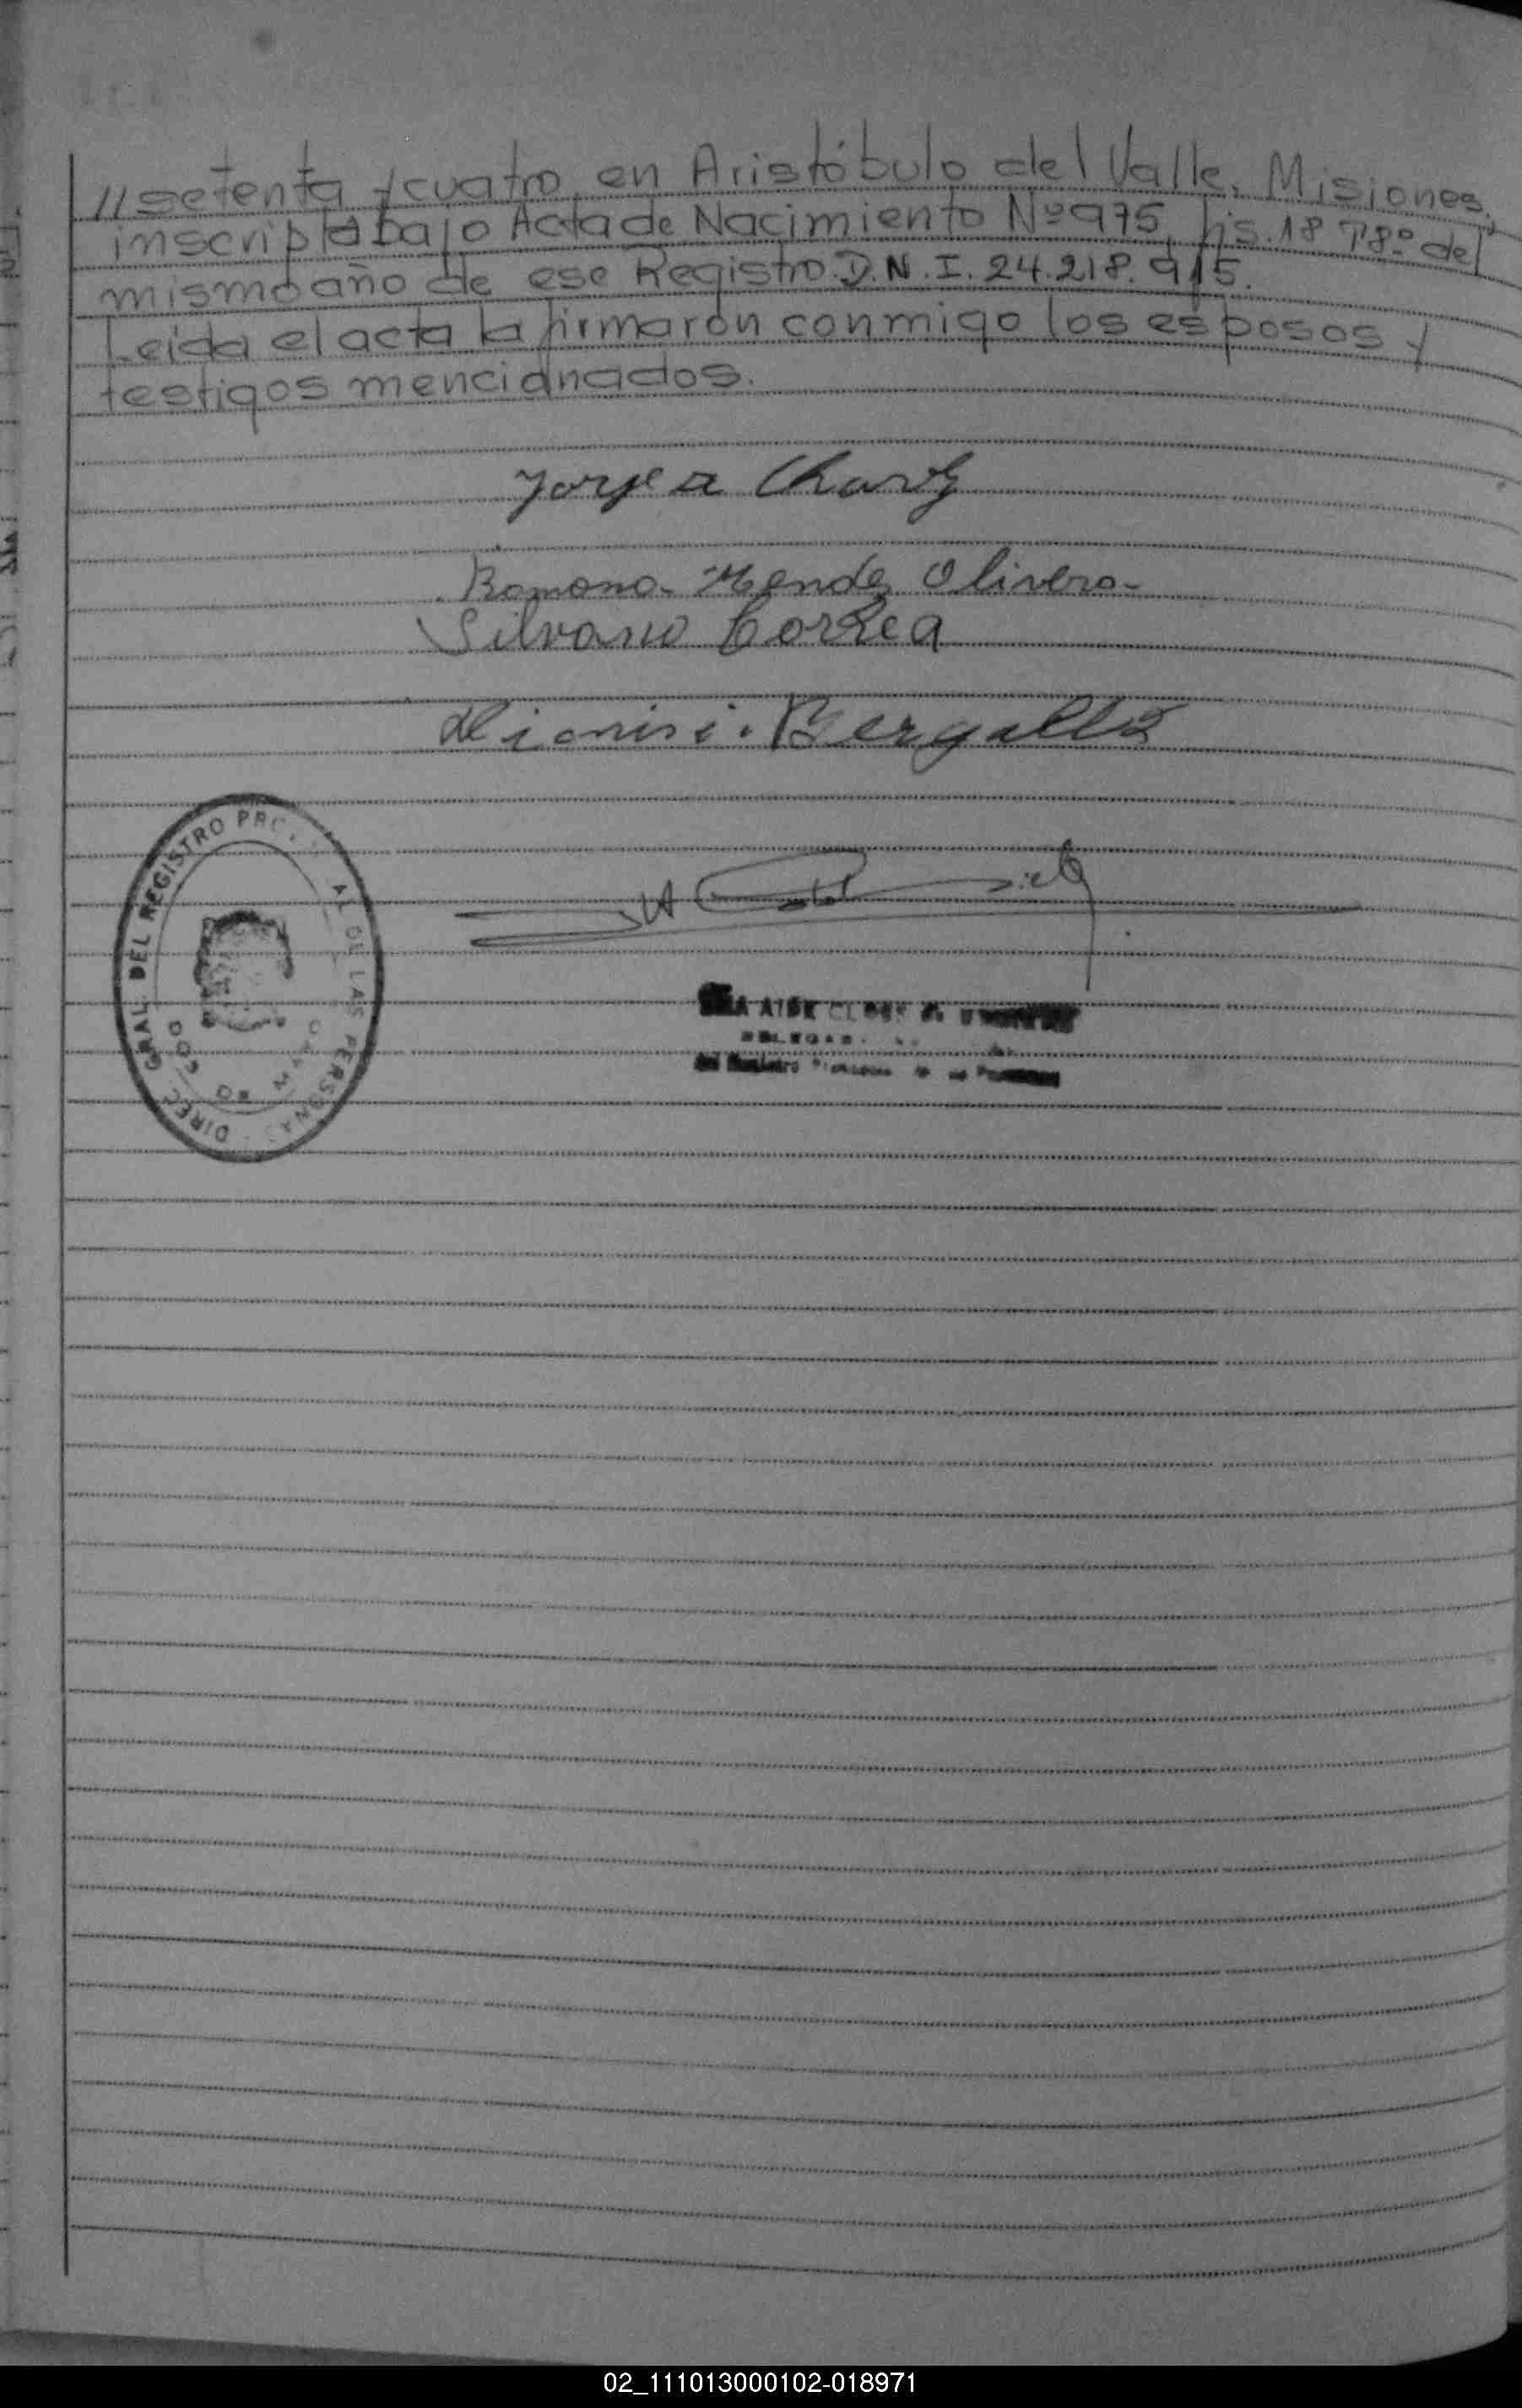 //setenta y cuatro, en Aristóbulo del Valle, Misiones,
inscripta bajo Acta de Nacimiento Nº 975, fjs. 18 Tº 8º del
mismo año de ese Registro. D.N.I. 24.218.915.
Leida el acta la firmaron conmigo los esposos y
testigos mencionados.
Jorge a
Romona- Mendez Olivera-
Silvano Correa
Bergallo
DIREC GRAL. DEL REGISTRO AL DE LAS PERSONAS
02_111013000102-018971